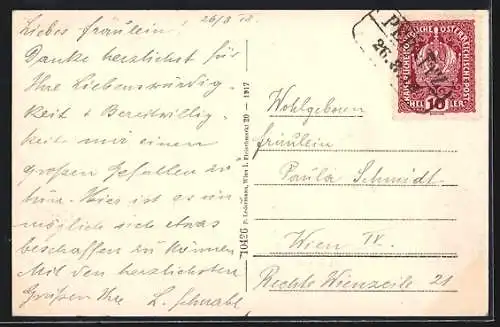 26/8 18.
Liebes Fräulein!
Danke herzlichst für
Ihre Liebenswürdig-
keit + Bereitwillig-
keit mir einen
großen Gefallen zu
tun. Hier ist es un
möglich sich etwas
beschaffen zu können
Mit den herzlichsten
Grüßen Ihr L. Schnabl
10426 P. Ledermann, Wien I. Fleischmarkt 20 — 1917
26.8
KAISERLICHE KÖNIGLICHE ÖSTERREICHISCHE POST
HEL 10 LER
Wohlgeboren
Fräulein
Paula Schmidt
Wien IV.
Rechte Wienzeile 21